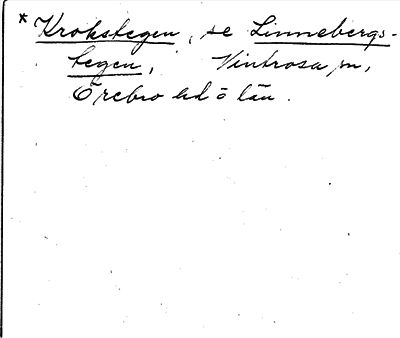 * Krokstegen, se Linnebergs-
tegen, Vintrosa sn,
Örebro hd ö län.